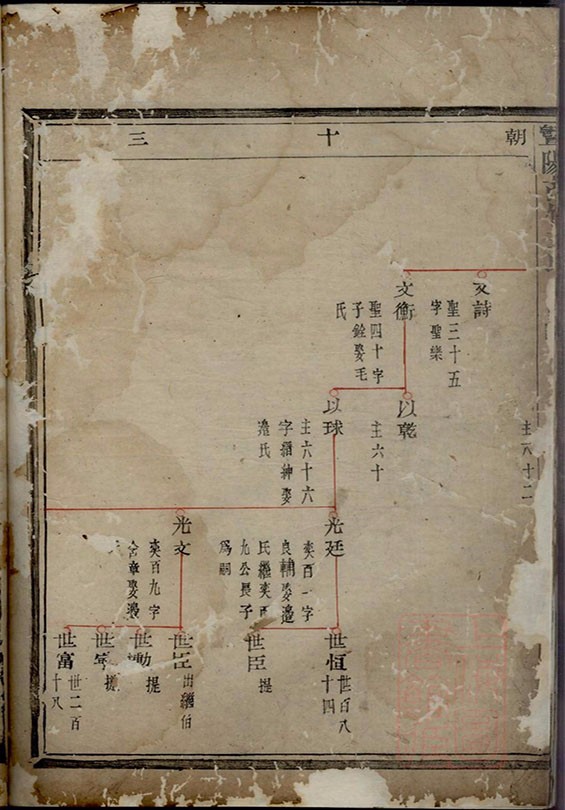 朝十三
文詩
聖三十五
字聖樂
文衡
聖四十字
子銓娶毛
氏
主八十二
以乾
主六十
以球
主六十六
字縉紳娶
邉氏
光廷
葵百一字
良輔娶邉
氏繼葵百
九公長子
爲嗣
光文
葵百九字
含章娶邉
世恒
世百八
十四
世臣
提
世臣
出繼伯
世勳
提
世寧
提
世富
世二百
十八